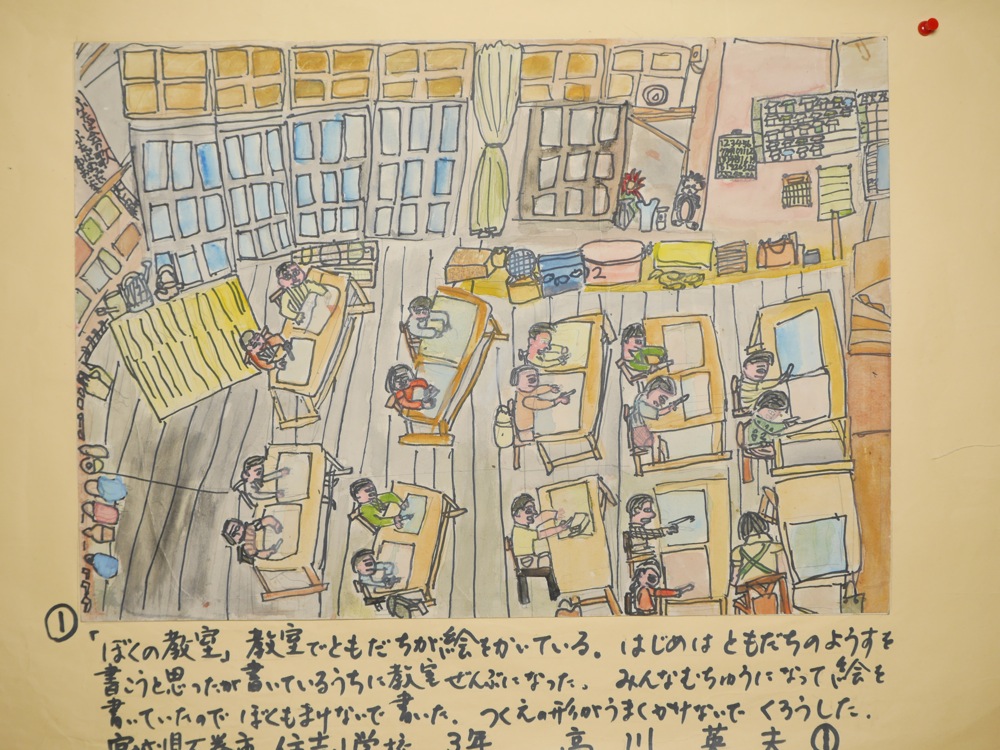 ① 「ぼくの教室」 教室でともだちが絵をかいている。 はじめは ともだちのようすを
書こうと思ったが書いているうちに教室ぜんぶになった。 みんなむちゅうになって絵を
書いていたので ぼくもまけないで書いた. つくえの形がうまくかけないで くろうした.
宮城県石巻市 住吉小学校 3年 高川 英夫 ①
2